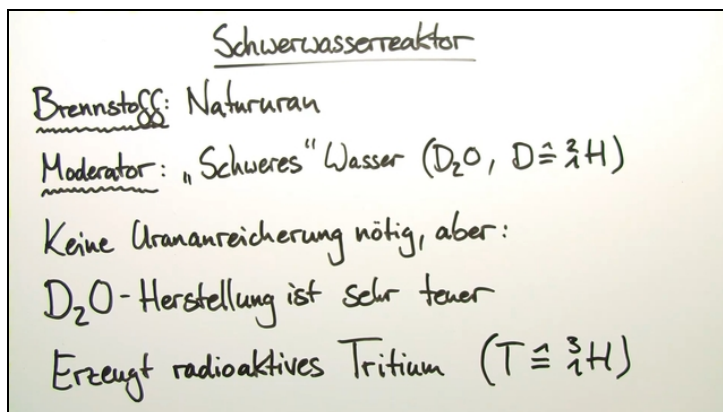 Schwerwasserreaktor
Brennstoff: Natururan
Moderator: „Schweres" Wasser (D₂O, D ≙ ²₁H)
Keine Urananreicherung nötig, aber:
D₂O-Herstellung ist sehr teuer
Erzeugt radioaktives Tritium (T ≙ ³₁H)